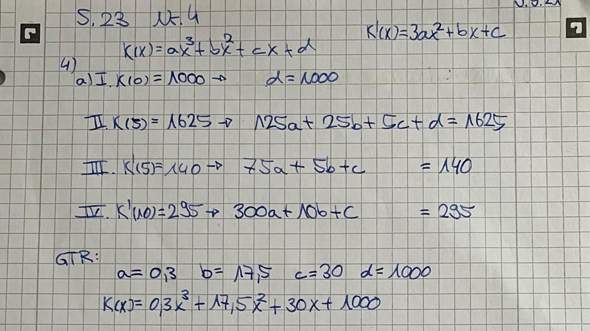 S.23 Nr.4
K(x)=ax³+bx²+cx+d K'(x)=3ax²+bx+c
4)
a) I. K(0)=1000→ d=1000
II. K(5)=1625→ 125a+25b+5c+d=1625
III. K'(5)=140→ 75a+5b+c =140
IV. K'(10)=295→ 300a+10b+c =295
GTR:
a=0,3 b=17,5 c=30 d=1000
K(x)=0,3x³+17,5x²+30x+1000